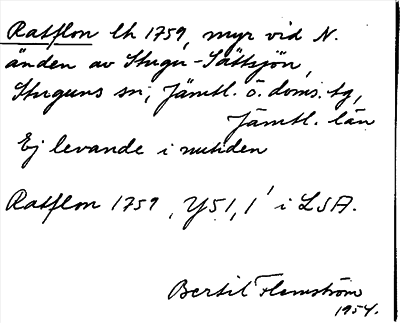 Ratflon lh 1759, myr vid N.
änden av Stugu-Sättsjön,
Stuguns sn, Jämtl. ö. doms. tg,
Jämtl. län
Ej levande i nutiden
Ratflon 1759, "Y51,1" i LSA.
Bertil Flemström
1954.